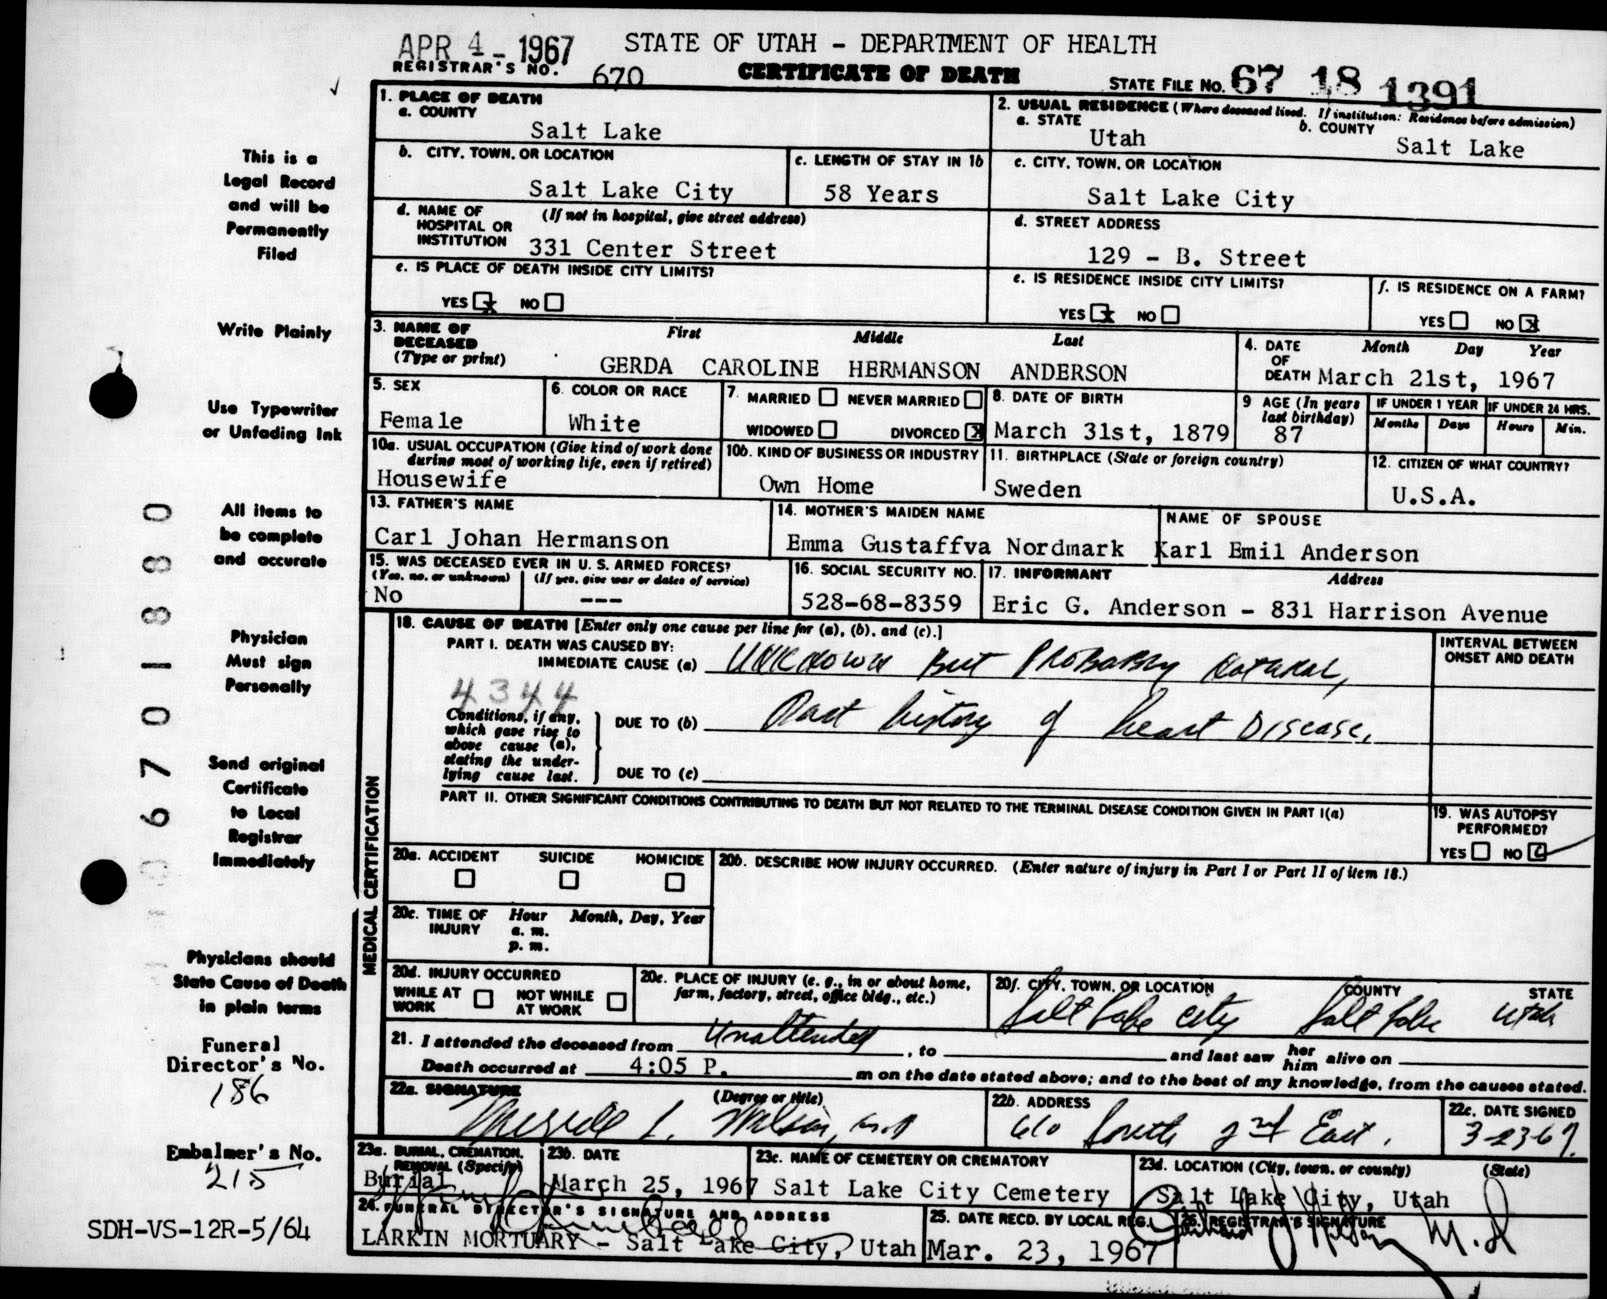 APR 4 - 1967
STATE OF UTAH - DEPARTMENT OF HEALTH
REGISTRAR'S NO. 670
CERTIFICATE OF DEATH
STATE FILE NO. 67 18 1391
1. PLACE OF DEATH
a. COUNTY
Salt Lake
2. USUAL RESIDENCE (Where deceased lived. If institution: Residence before admission)
a. STATE
Utah
b. COUNTY
Salt Lake
b. CITY, TOWN, OR LOCATION
Salt Lake City
c. LENGTH OF STAY IN 1b
58 Years
c. CITY, TOWN, OR LOCATION
Salt Lake City
d. NAME OF HOSPITAL OR INSTITUTION
(If not in hospital, give street address)
331 Center Street
d. STREET ADDRESS
129 - B. Street
e. IS PLACE OF DEATH INSIDE CITY LIMITS?
YES x NO
e. IS RESIDENCE INSIDE CITY LIMITS?
YES x NO
f. IS RESIDENCE ON A FARM?
YES NO X
3. NAME OF DECEASED
(Type or print)
First Middle Last
GERDA CAROLINE HERMANSON ANDERSON
4. DATE OF DEATH
Month Day Year
March 21st, 1967
5. SEX
Female
6. COLOR OR RACE
White
7. MARRIED NEVER MARRIED
WIDOWED DIVORCED X
8. DATE OF BIRTH
March 31st, 1879
9 AGE (In years last birthday)
87
IF UNDER 1 YEAR
Months Days
IF UNDER 24 HRS.
Hours Min.
10a. USUAL OCCUPATION (Give kind of work done during most of working life, even if retired)
Housewife
10b. KIND OF BUSINESS OR INDUSTRY
Own Home
11. BIRTHPLACE (State or foreign country)
Sweden
12. CITIZEN OF WHAT COUNTRY?
U.S.A.
13. FATHER'S NAME
Carl Johan Hermanson
14. MOTHER'S MAIDEN NAME
Emma Gustaffva Nordmark
NAME OF SPOUSE
Karl Emil Anderson
15. WAS DECEASED EVER IN U. S. ARMED FORCES?
(Yes, no, or unknown) (If yes, give war or dates of service)
No ---
16. SOCIAL SECURITY NO.
528-68-8359
17. INFORMANT Address
Eric G. Anderson - 831 Harrison Avenue
MEDICAL CERTIFICATION
18. CAUSE OF DEATH [Enter only one cause per line for (a), (b), and (c).]
INTERVAL BETWEEN ONSET AND DEATH
PART I. DEATH WAS CAUSED BY:
IMMEDIATE CAUSE (a) Unknown But Probably natural,
4344
Conditions, if any, which gave rise to above cause (a), stating the underlying cause last.
DUE TO (b) Past history of heart Disease.
DUE TO (c)
PART II. OTHER SIGNIFICANT CONDITIONS CONTRIBUTING TO DEATH BUT NOT RELATED TO THE TERMINAL DISEASE CONDITION GIVEN IN PART I(a)
19. WAS AUTOPSY PERFORMED?
YES NO
20a. ACCIDENT SUICIDE HOMICIDE
20b. DESCRIBE HOW INJURY OCCURRED. (Enter nature of injury in Part I or Part II of item 18.)
20c. TIME OF INJURY
Hour Month, Day, Year
a. m.
p. m.
20d. INJURY OCCURRED
WHILE AT WORK NOT WHILE AT WORK
20e. PLACE OF INJURY (e. g., in or about home, farm, factory, street, office bldg., etc.)
20f. CITY, TOWN, OR LOCATION COUNTY STATE
Salt Lake City Salt Lake Utah
21. I attended the deceased from Unattended, to and last saw her him alive on
Death occurred at 4:05 P. m on the date stated above; and to the best of my knowledge, from the causes stated.
22a. SIGNATURE (Degree or title)
L. Wilson, M.D
22b. ADDRESS
610 South 2nd East.
22c. DATE SIGNED
3-23-67.
23a. BURIAL, CREMATION, REMOVAL (Specify)
Burial
23b. DATE
March 25, 1967
23c. NAME OF CEMETERY OR CREMATORY
Salt Lake City Cemetery
23d. LOCATION (City, town, or county) (State)
Salt Lake City, Utah
24. FUNERAL DIRECTOR'S SIGNATURE AND ADDRESS
LARKIN MORTUARY - Salt Lake City, Utah
25. DATE RECD. BY LOCAL REG.
Mar. 23, 1967
26. REGISTRAR'S SIGNATURE
M.D
This is a
Legal Record
and will be
Permanently
Filed
Write Plainly
Use Typewriter
or Unfading Ink
All items to
be complete
and accurate
Physician
Must sign
Personally
Send original
Certificate
to Local
Registrar
Immediately
Physicians should
State Cause of Death
in plain terms
Funeral
Director's No.
186
Embalmer's No.
215
SDH-VS-12R-5/64
6701880